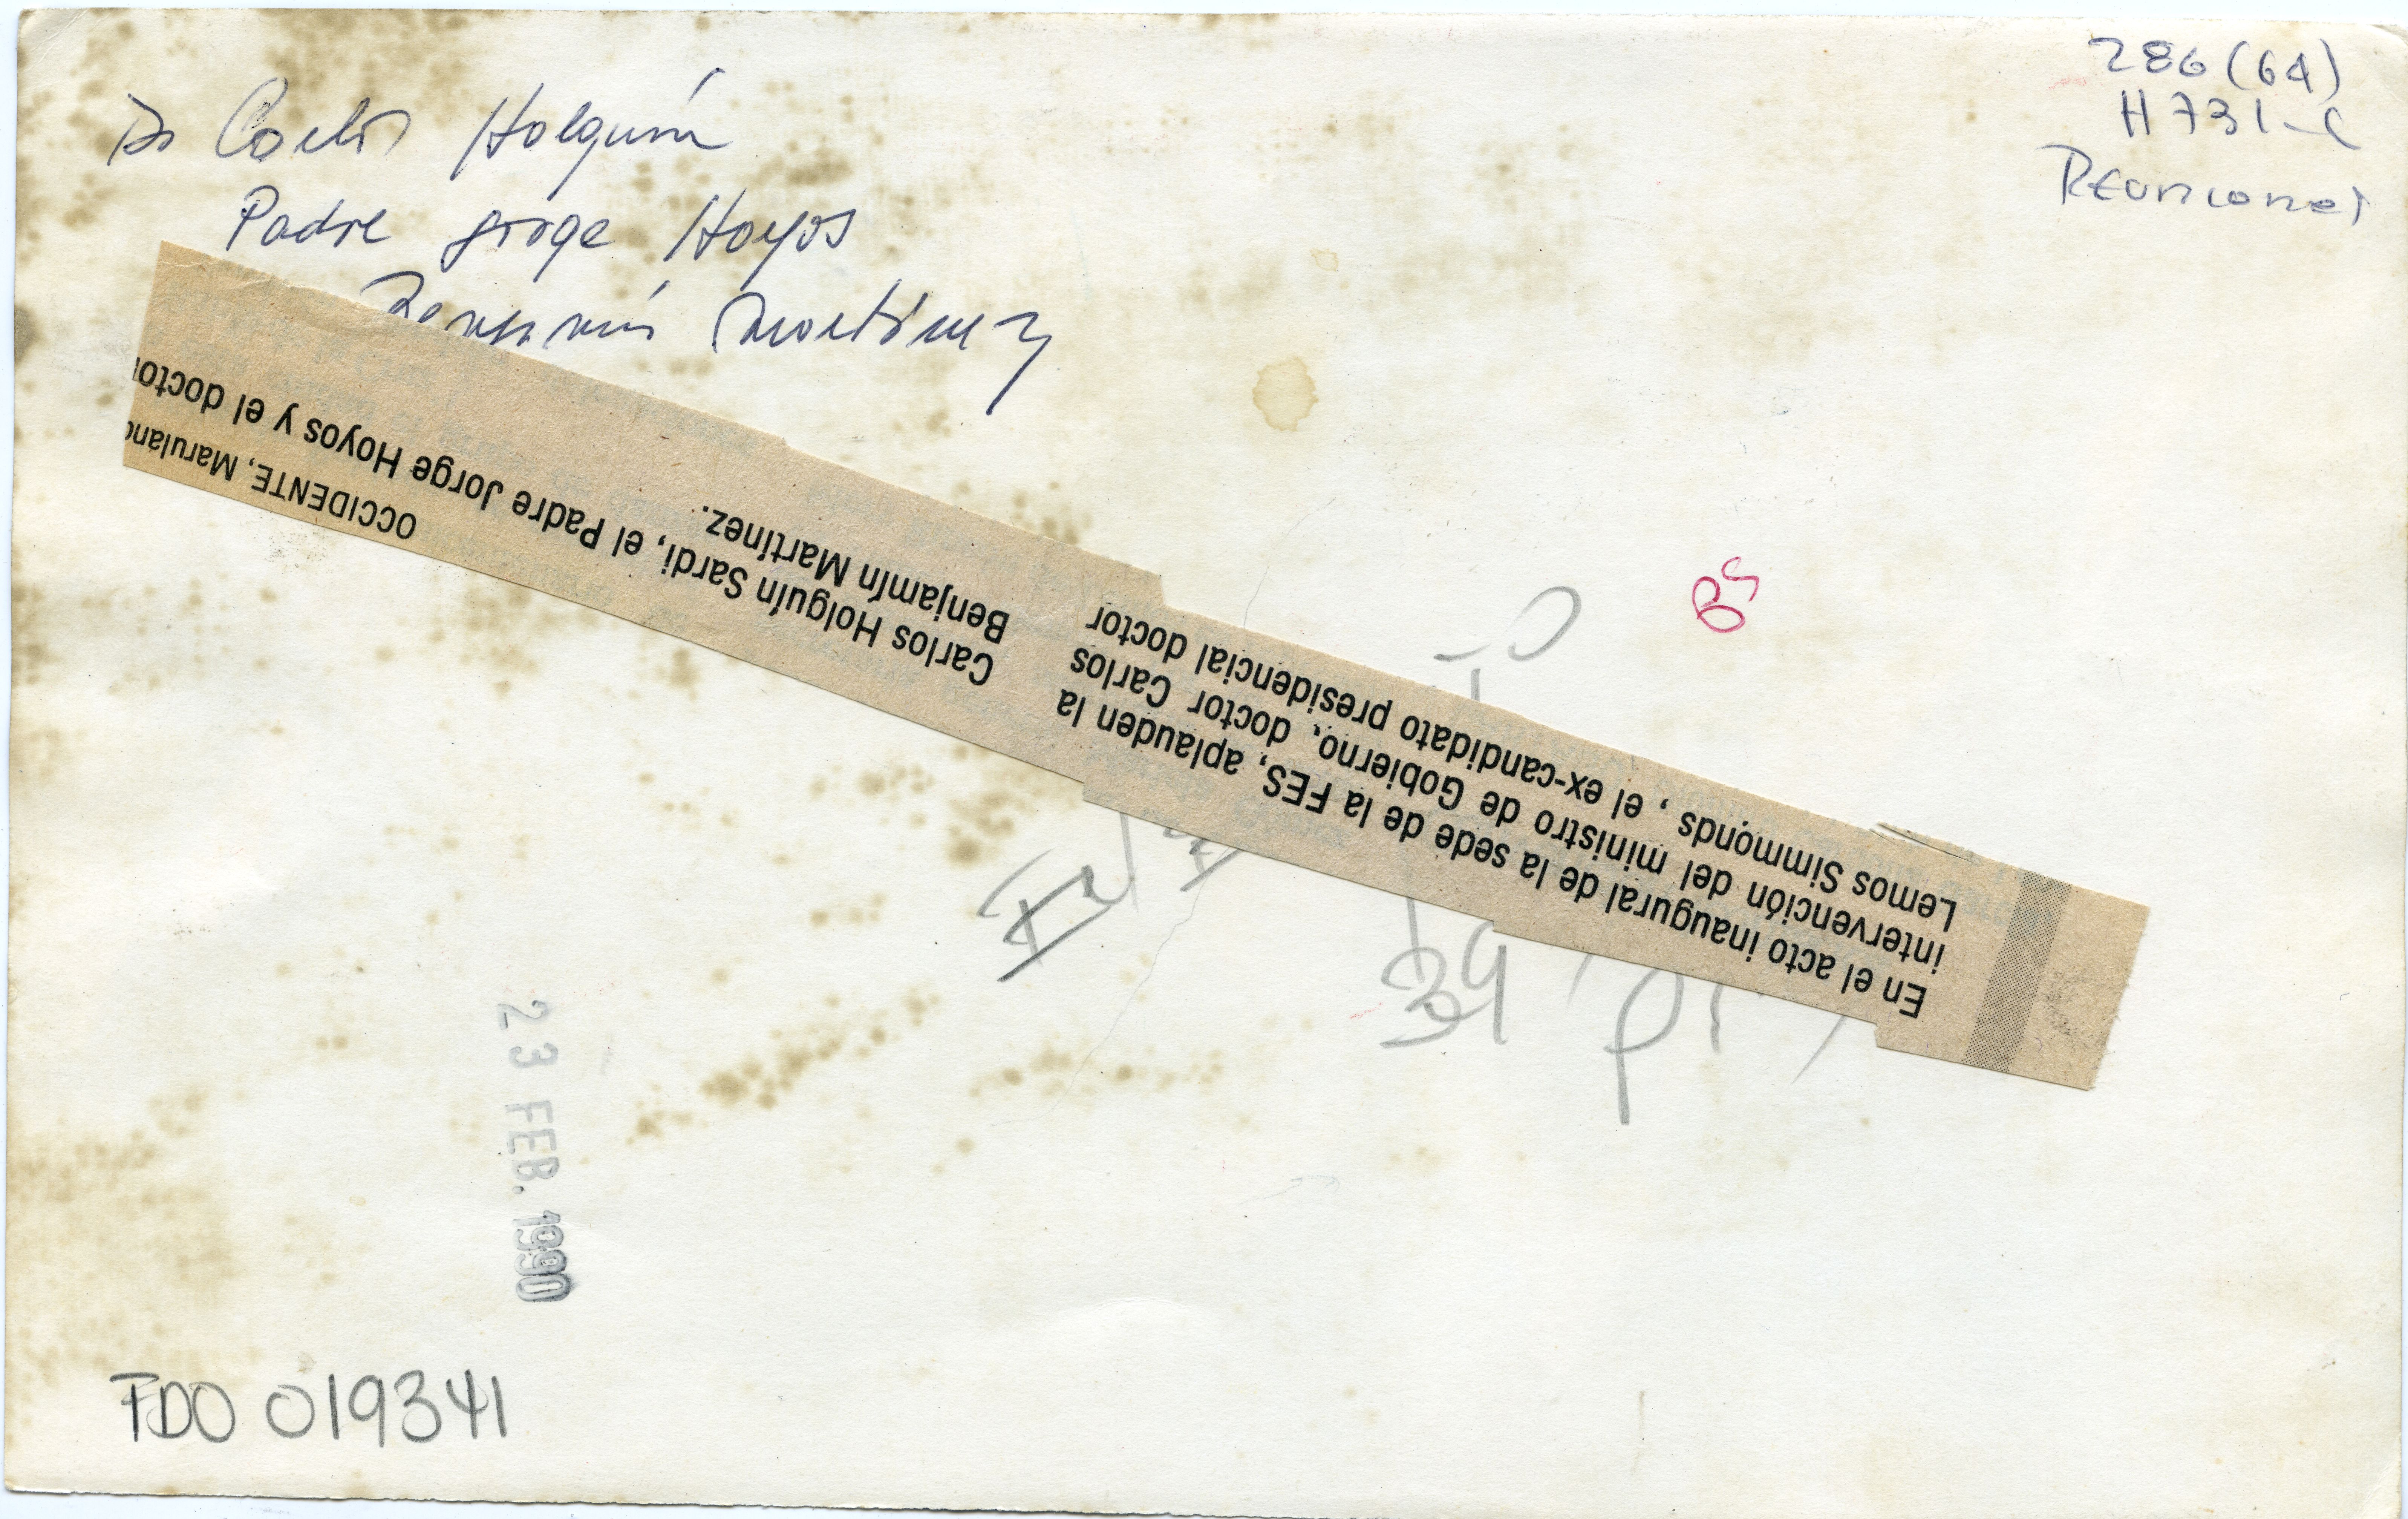 286 (64)
H731-C
Reuniones
Dr Carlos Holguín
Padre Jorge Hoyos
Benjamín Martínez
En el acto inaugural de la sede de la FES, aplauden la
intervención del ministro de Gobierno, doctor Carlos
Lemos Simmonds , el ex-candidato presidencial doctor
Carlos Holguín Sardi, el Padre Jorge Hoyos y el doctor
Benjamín Martínez.
OCCIDENTE, Marulan
BS
39
23 FEB. 1990
FDO 019341